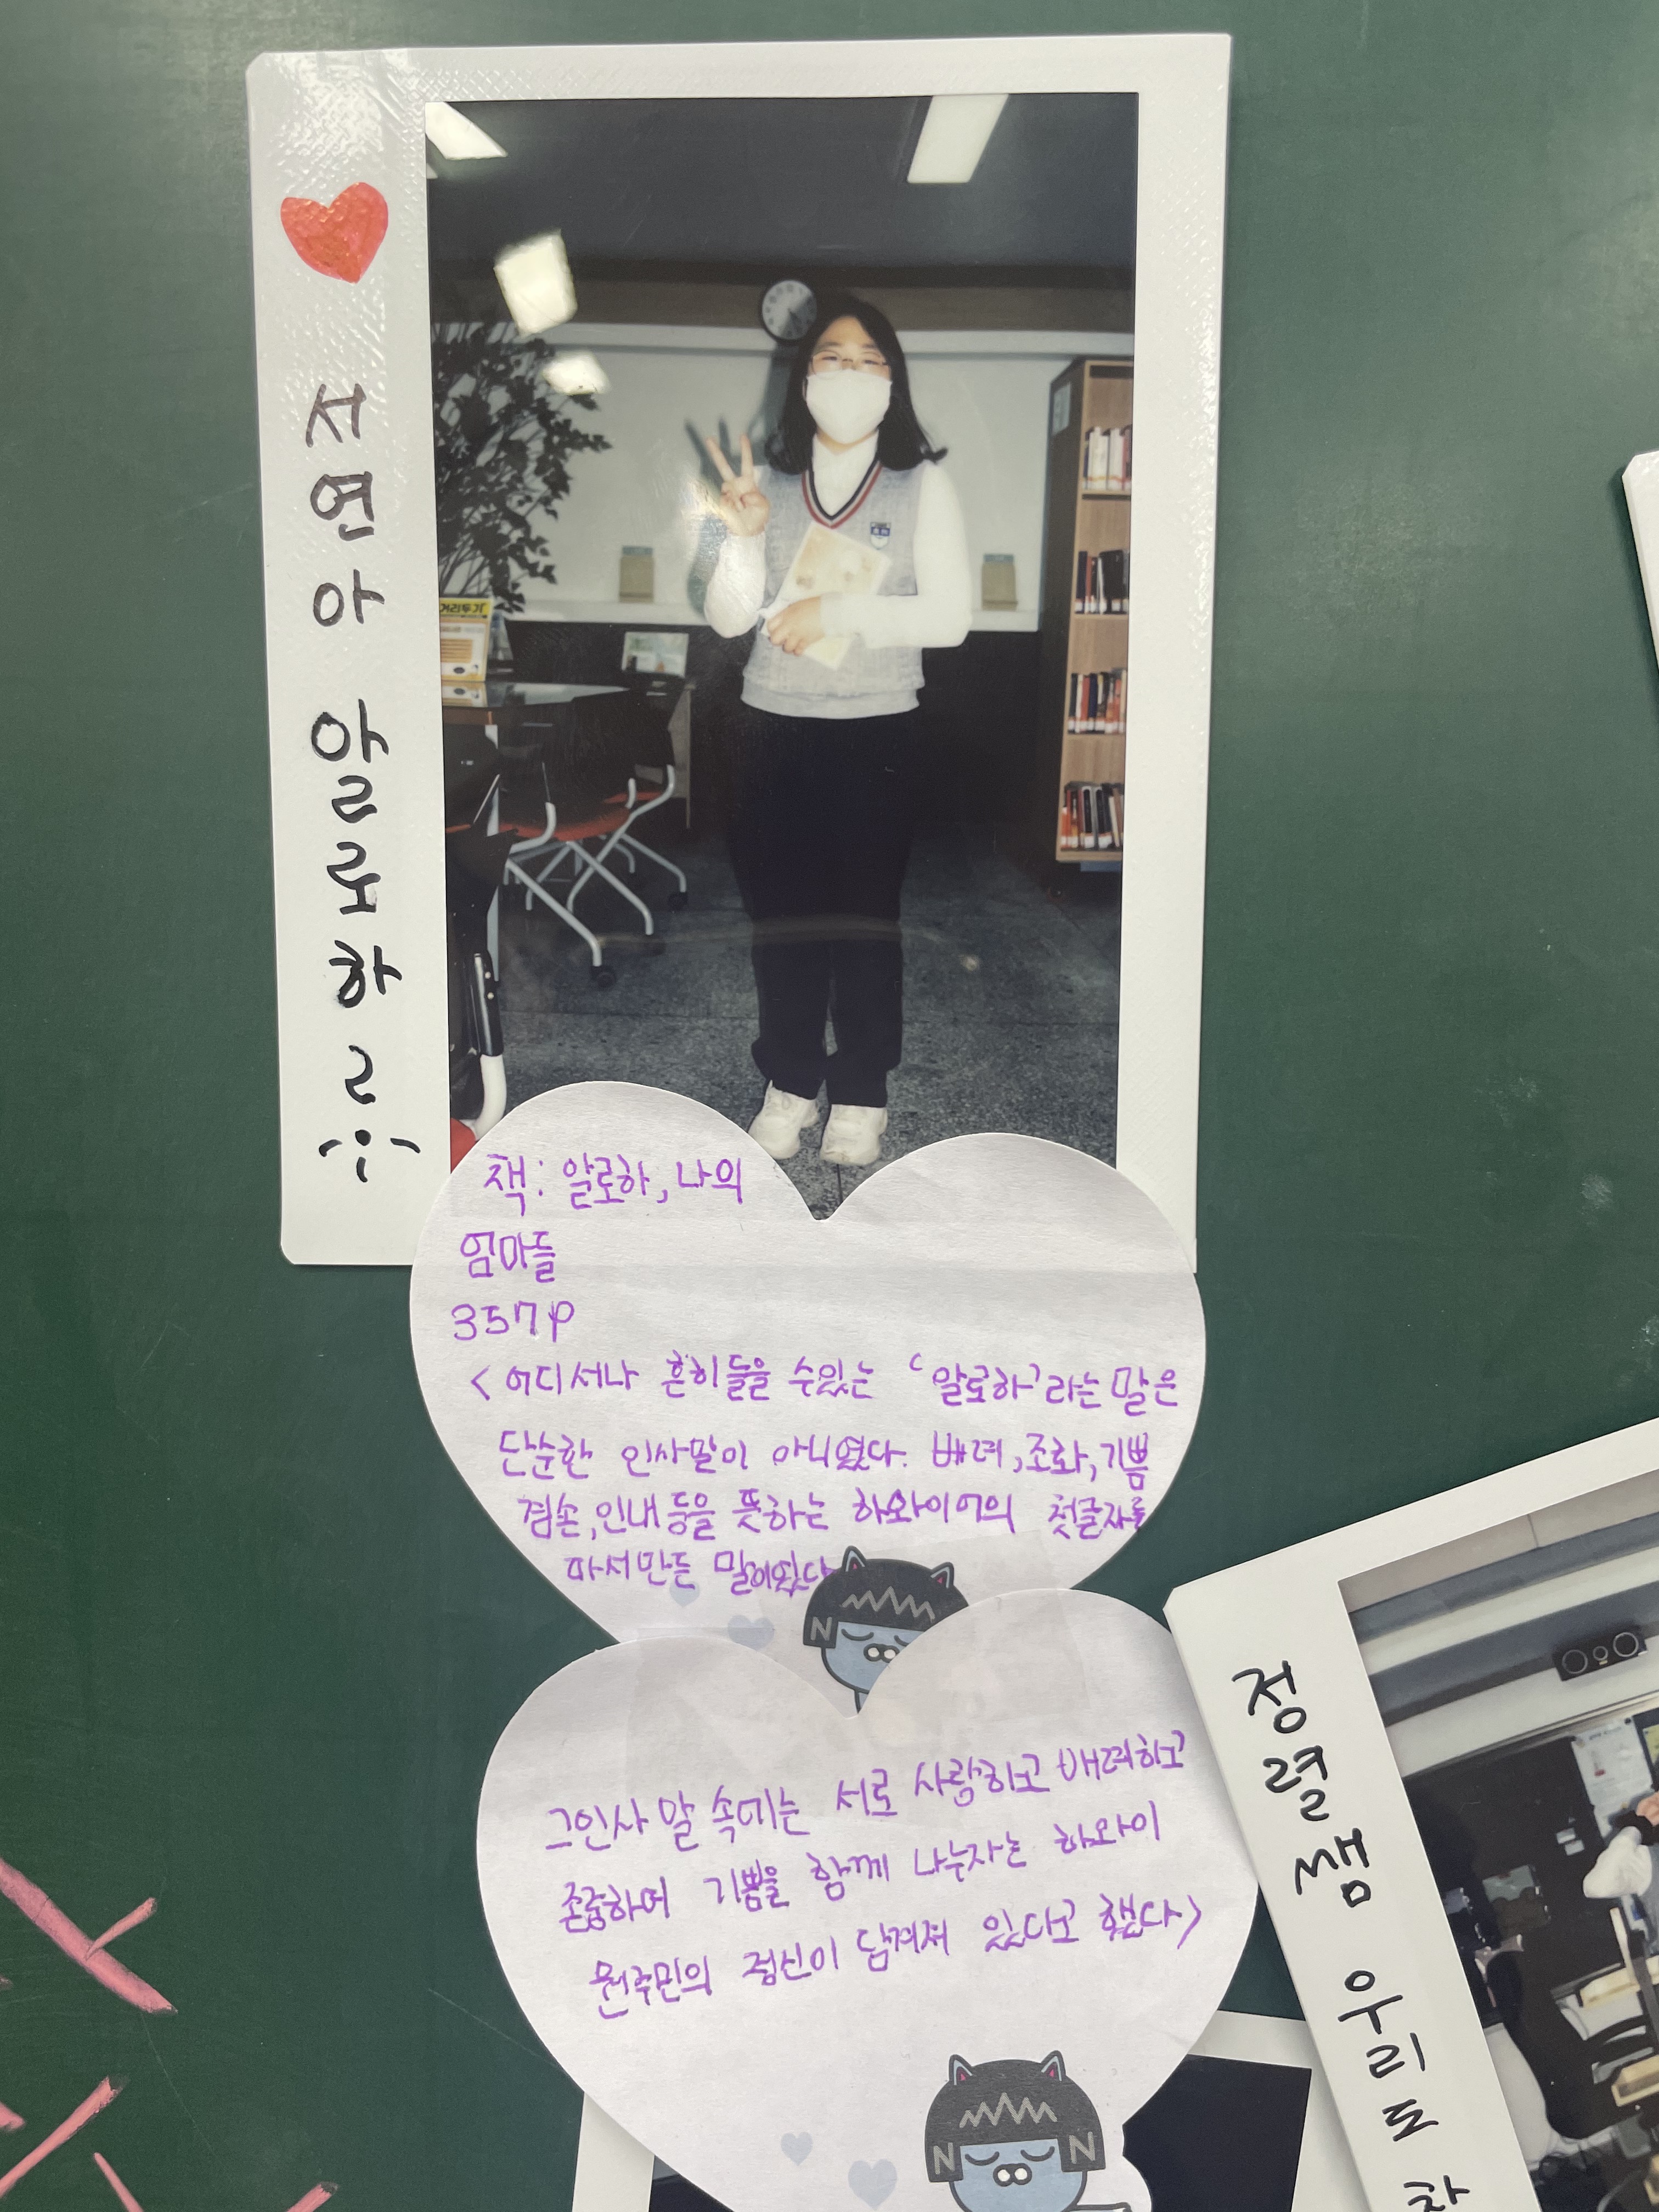 서연아 알로하 오
거리두기
책: 알로하, 나의
엄마들
357p
<어디서나 흔히들을 수있는 '알로하'라는 말은
단순한 인사말이 아니였다. 배려, 조화, 기쁨
겸손, 인내 등을 뜻하는 하와이어의 첫글자를
따서만든 말이었다
그인사 말 속에는 서로 사랑하고 배려하고
존중하며 기쁨을 함께 나누자는 하와이
원주민의 정신이 담겨져 있다고 했다>
N
N N
정렬쌤 우리도